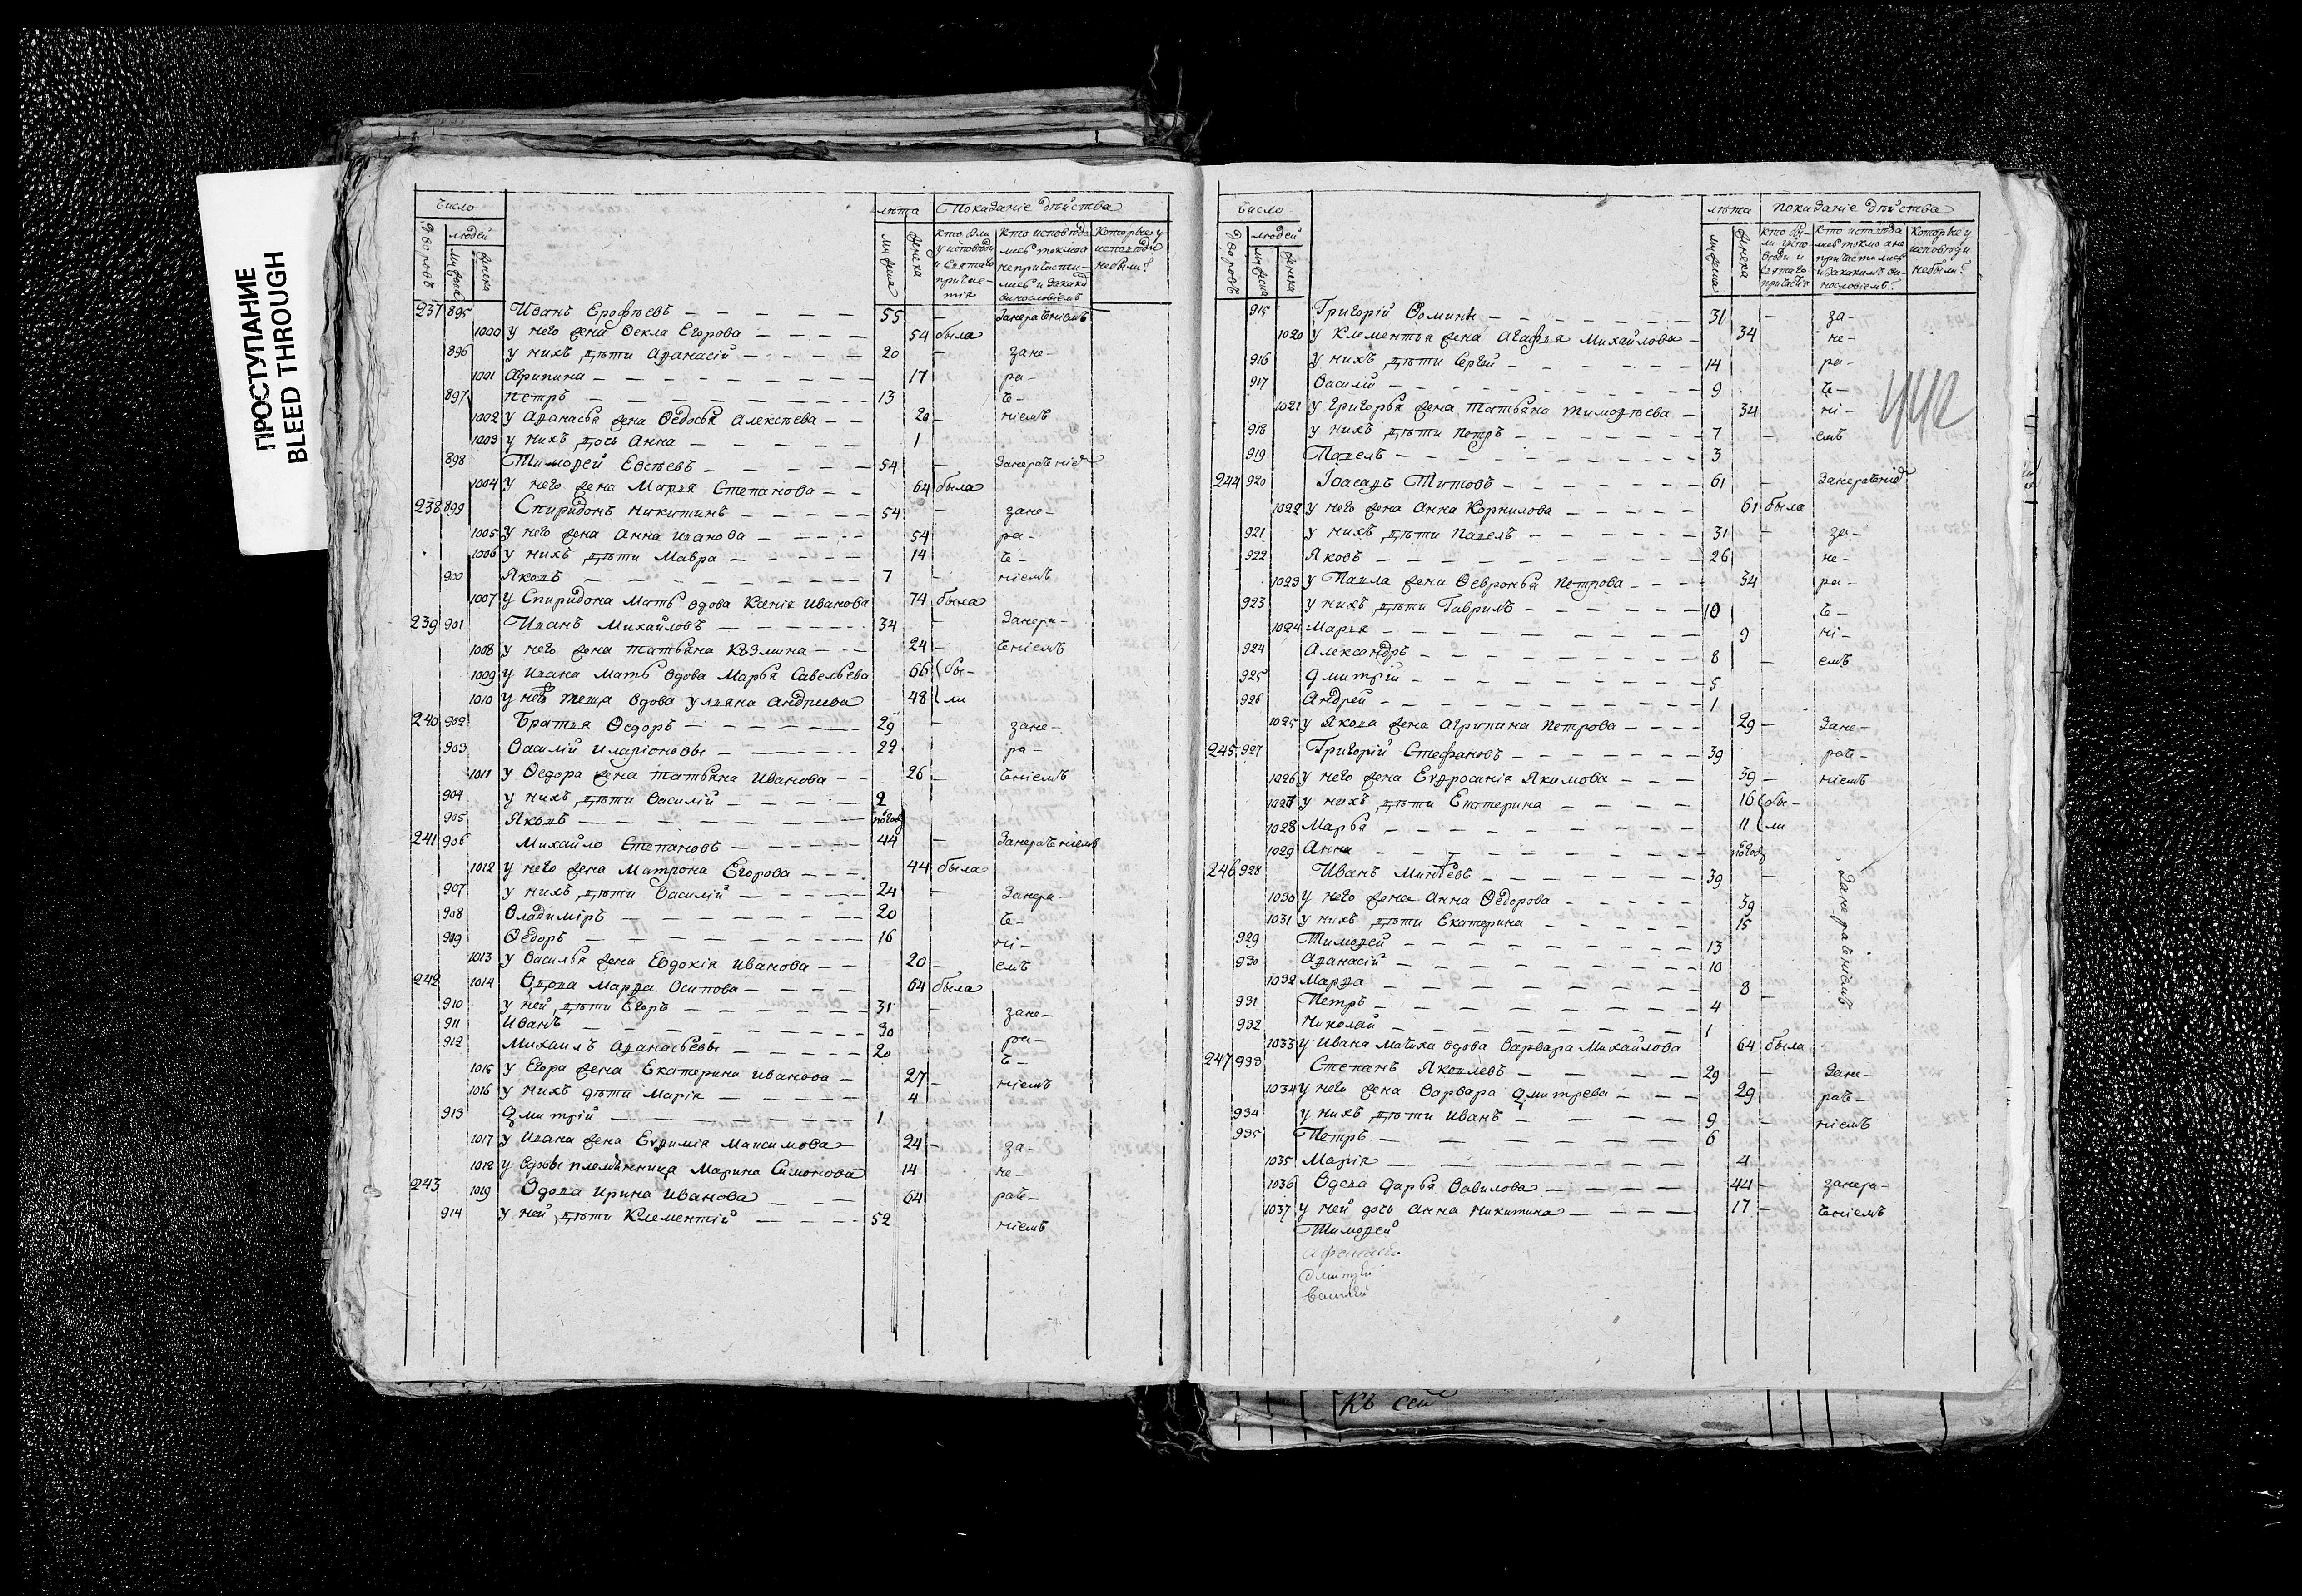 ПРОСТУПАНИЕ
BLEED THROUGH
Число
лѣта Показаніе дѣйства
Дворовъ людей
мужеска женска
мужеска женска
Кто были у исповѣди и святаго причастія
Кто исповѣдались токмо а не причастились и за какимъ винословіемъ
Которые у исповѣди не были?
237 895 Иванъ Ерофѣевъ 55 – занераченіемъ
1000 у него жена Ѳекла Егорова 54 была
896 у нихъ дѣти Аѳанасій 20 – зане-
1001 Агрипина 17 ра-
897 Петръ 13 – че-
1002 у Аѳанасья жена Ѳедосья Алексѣева 20 – ніемъ
1003 у нихъ дочь Анна 1
898 Тимоѳей Евсѣевъ 54 – занераченіе
1004 у него жена Марья Степанова 64 была
238 899 Спиридонъ Никитинъ 54 – зане-
1005 у него жена Анна Иванова 54 ра-
1006 у нихъ дѣти Мавра 14 че-
900 Яковъ 7 – ніемъ
1007 у Спиридона мать вдова Ксенія Иванова 74 была
239 901 Иванъ Михайловъ 34 – занера-
1008 у него жена Татьяна Козмина 24 – ченіемъ
1009 у Ивана мать вдова Марья Савельева 66 бы-
1010 у него теща вдова Ульяна Андриева 48 ли
240 902 Братья Ѳедоръ 29 – зане-
903 Василій Иларіоновы 22 ра-
1011 у Ѳедора жена Татьяна Иванова 26 – ченіемъ
904 у нихъ дѣти Василій 2
905 Яковъ полгоду
241 906 Михайло Степановъ 44 – занераченіемъ
1012 у него жена Матрона Егорова 44 была
907 у нихъ дѣти Василій 24 – занера-
908 Владиміръ 20 че-
909 Ѳедоръ 16 ні-
1013 у Василья жена Евдокія Иванова 20 – емъ
242 1014 Вдова Марѳа Осипова 64 была
910 у ней дѣти Егоръ 31 – зане-
911 Иванъ 30 ра-
912 Михаилъ Аѳанасьевы 20 че-
1015 у Егора жена Екатерина Иванова 27 – ніемъ
1016 у нихъ дѣти Марія 4
913 Дмитрій 1
1017 у Ивана жена Евѳимія Максимова 24 – за-
1018 у вдовы племянница Марина Симонова 14 не-
243 1019 Вдова Ирина Иванова 64 раче-
914 у ней дѣти Климентій 52 ніемъ
Число
лѣта показаніе дѣйства
Дворовъ людей
мужеска женска
мужеска женска
Кто были у исповѣди и святаго причастія
Кто исповѣдались токмо а не причастились и за какимъ винословіемъ?
Которые у исповѣди не были?
442
915 Григорій Ѳомины 31 – за-
1020 у Клементья жена Агафья Михайлова 34 не-
916 у нихъ дѣти Сергѣй 14 – ра-
917 Василій 9 че-
1021 у Григорья жена Татьяна Тимоѳѣева 34 ні-
918 у нихъ дѣти Петръ 7 – емъ
919 Павелъ 3
244 920 Іоасафъ Титовъ 61 – занераченіе
1022 у него жена Анна Корнилова 61 была
921 у нихъ дѣти Павелъ 31 – за-
922 Яковъ 26 не-
1023 у Павла жена Ѳевронья Петрова 34 ра-
923 у нихъ дѣти Гаврилъ 10 – че-
1024 Марья 9 ні-
924 Александръ 8 – емъ
925 Дмитрій 5
926 Андрей 1
1025 у Якова жена Агрипина Петрова 29 – зане-
245 927 Григорій Стефановъ 39 – раче-
1026 у него жена Евѳросинія Якимова 39 – ніемъ
1027 у нихъ дѣти Екатерина 16 бы-
1028 Марья 11 ли
1029 Анна полгоду
246 928 Иванъ Минѣевъ 39 – занераченіемъ
1030 у него жена Анна Ѳедорова 39
1031 у нихъ дѣти Екатерина 15
929 Тимоѳей 13
930 Аѳанасій 10
1032 Марѳа 8
931 Петръ 4
932 Николай 1
1033 у Ивана мачиха вдова Варвара Михайлова 64 была
247 933 Степанъ Яковлевъ 29 – зане-
1034 у него жена Варвара Дмитрева 29 – раче-
934 у нихъ дѣти Иванъ 9 – ніемъ
935 Петръ 6
1035 Марія 4
1036 Вдова Дарья Вавилова 44 – занера-
1037 у ней дочь Анна Никитина 17 – ченіемъ
Тимоѳей
Афанасей
Дмитрей
Василей